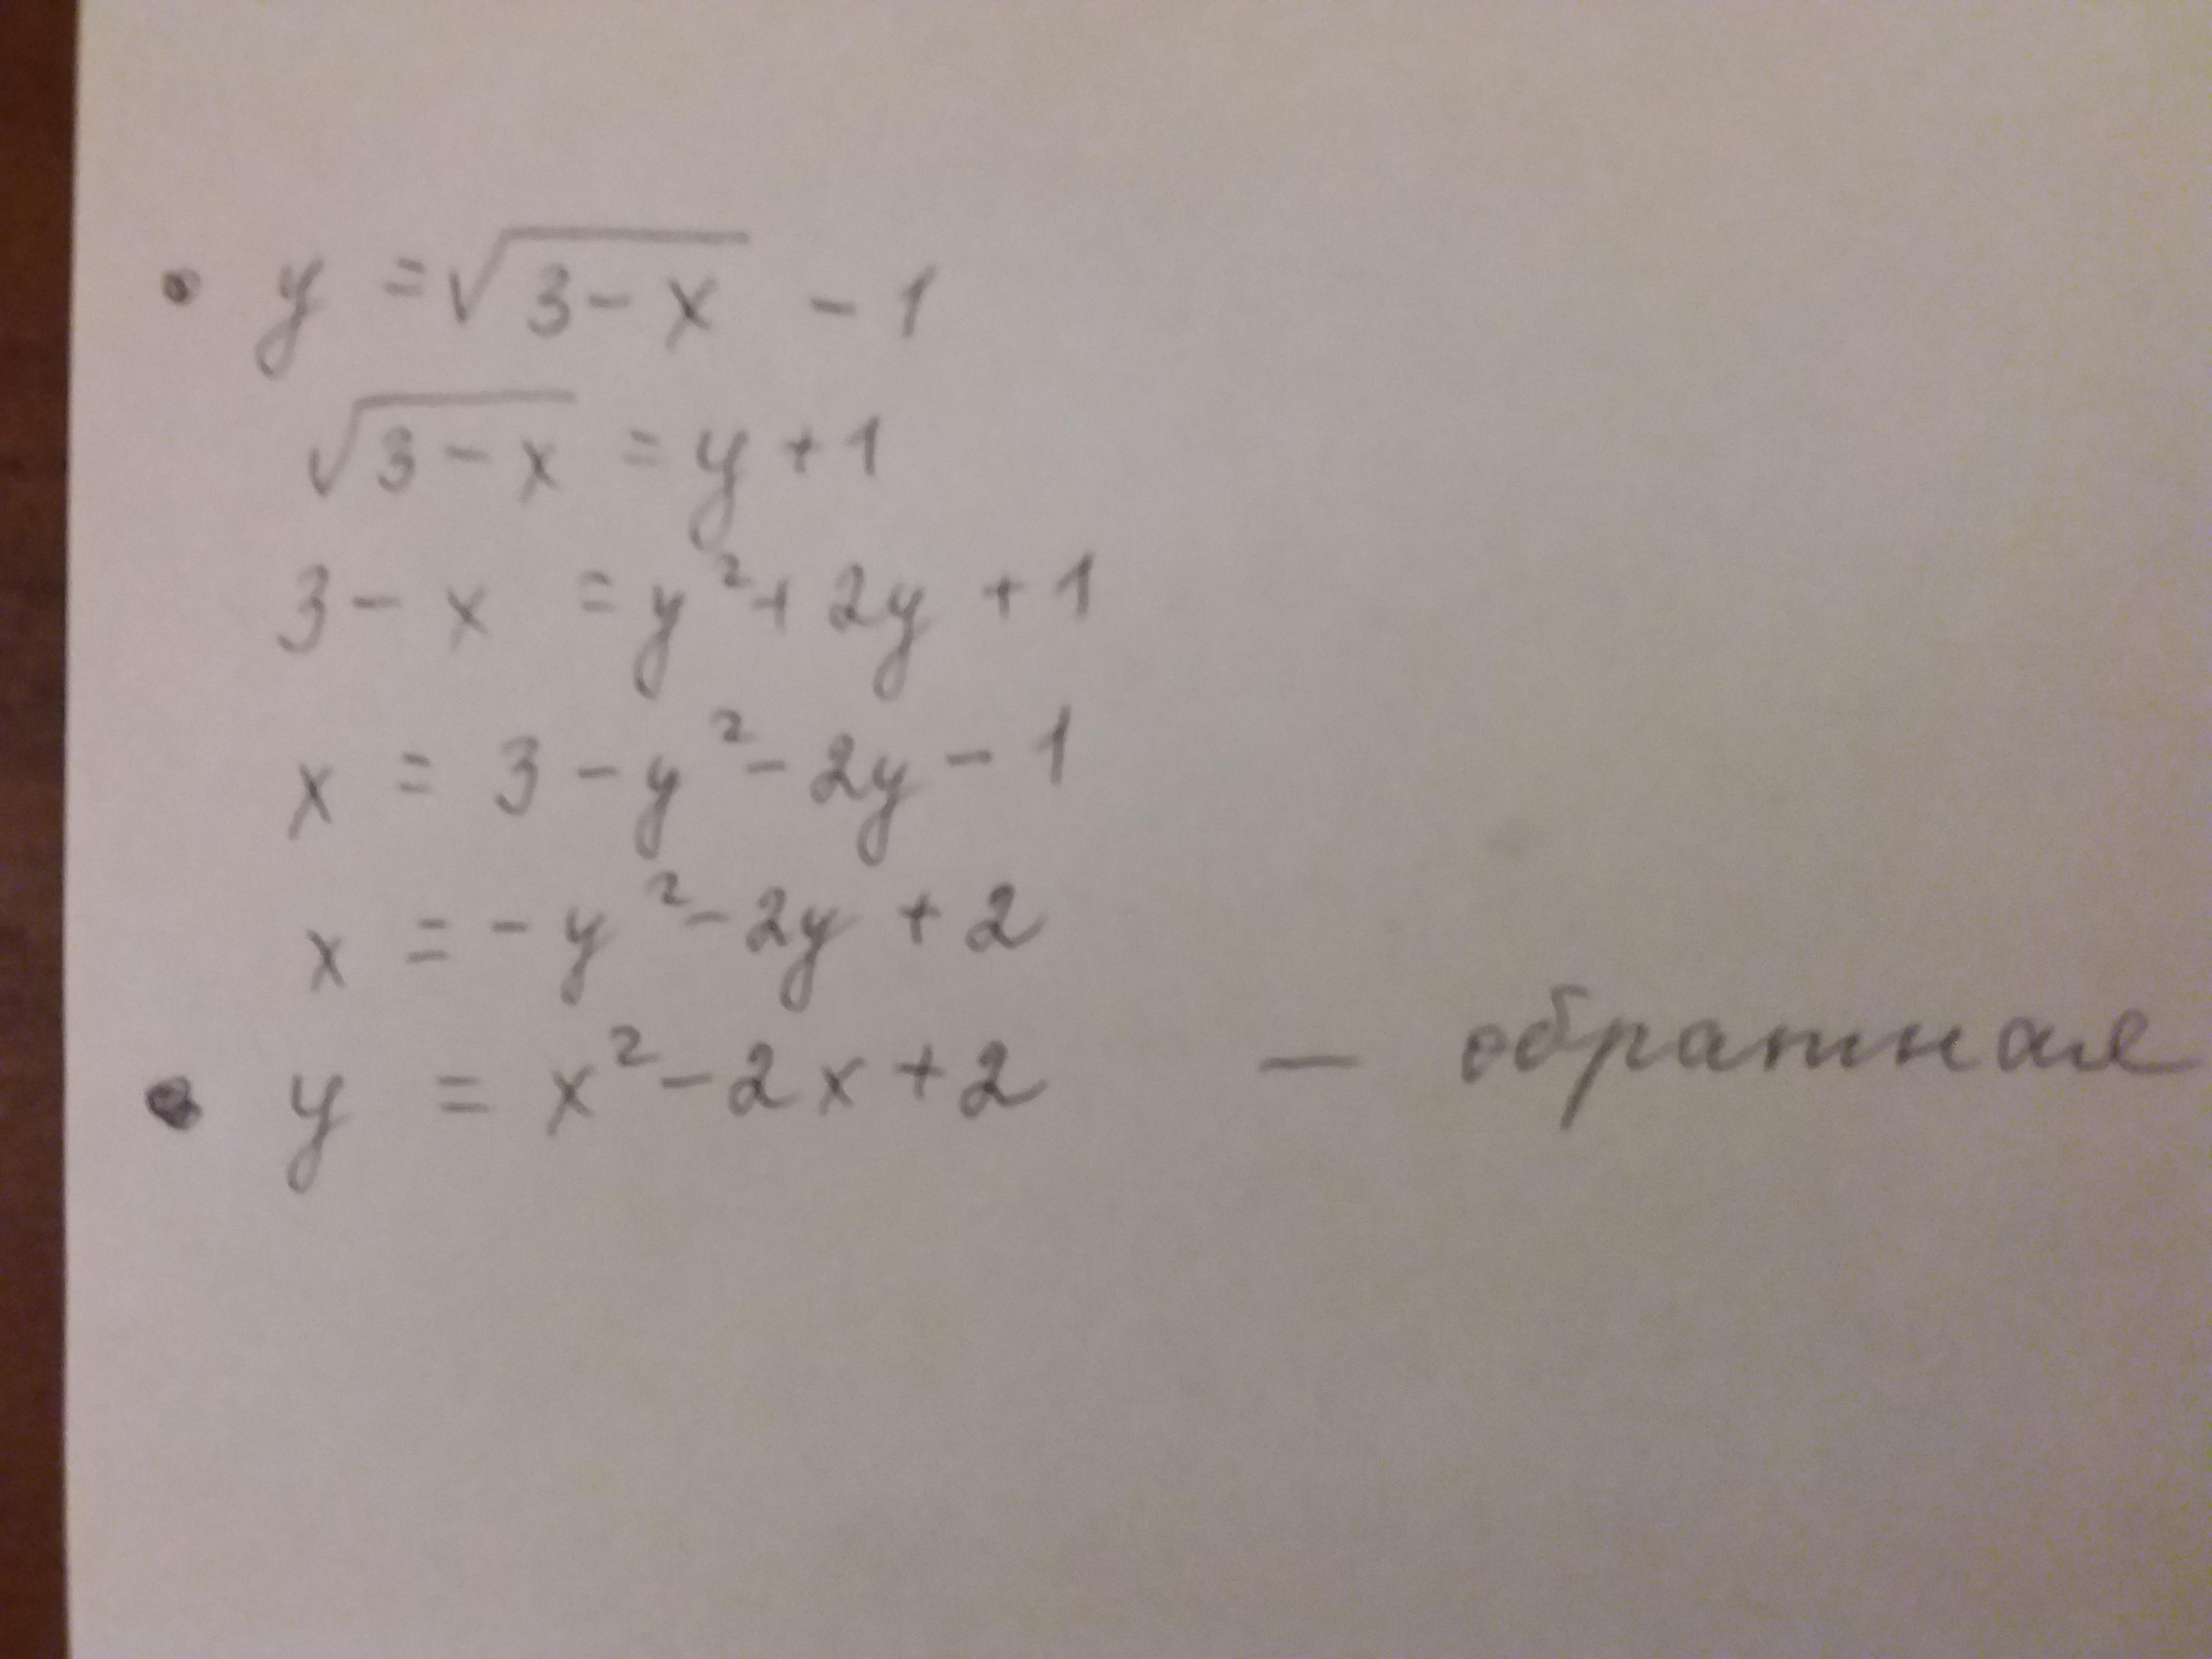 • y = √(3 - x) - 1
√(3 - x) = y + 1
3 - x = y² + 2y + 1
x = 3 - y² - 2y - 1
x = - y² - 2y + 2
• y = x² - 2x + 2 — обратная